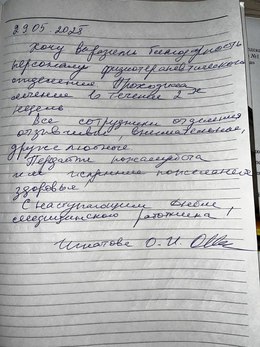 29.05.2025
Хочу выразить благодарность
персоналу физиотерапевтического
отделения. Проходила
лечение в течение 2-х
недель.
Все сотрудники отделения
отзывчивые, внимательные,
дружелюбные.
Передайте пожалуйста
им искренние пожелания
здоровья.
С наступающим Днём
медицинского работника!
Игнатова О. И.